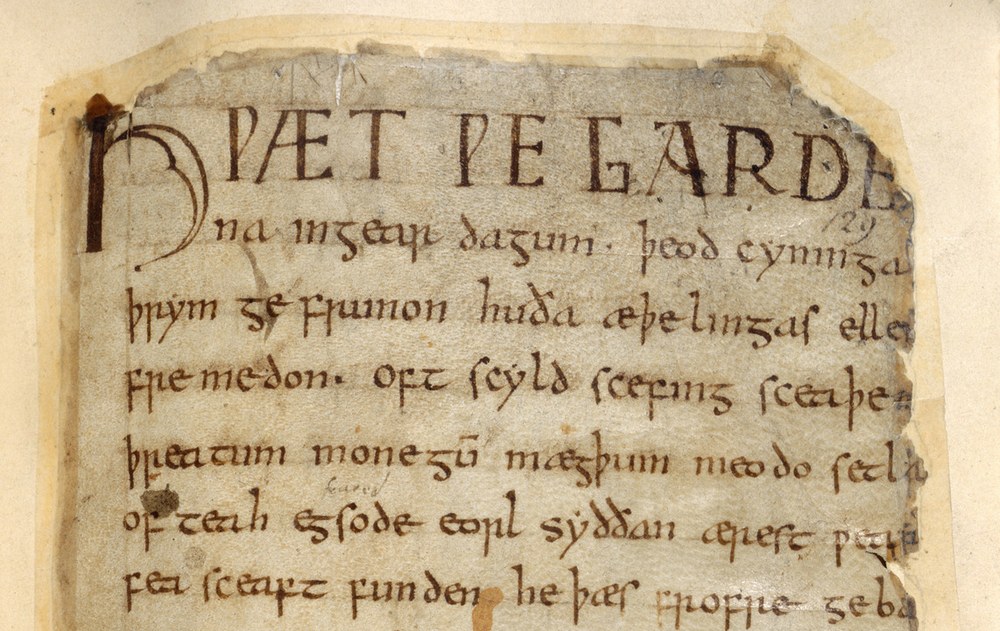 HǷÆT ǷE GARDE
129
na ingear dagum. þeod cyninga
þrym ge frunon huða æþelingas elle
fre medon. oft scyld scefing sceaþe
þreatum monegū mægþum meodo setla
of teah egsode eorl syððan ærest ƿear
fea sceaft funden he þæs frofre geba